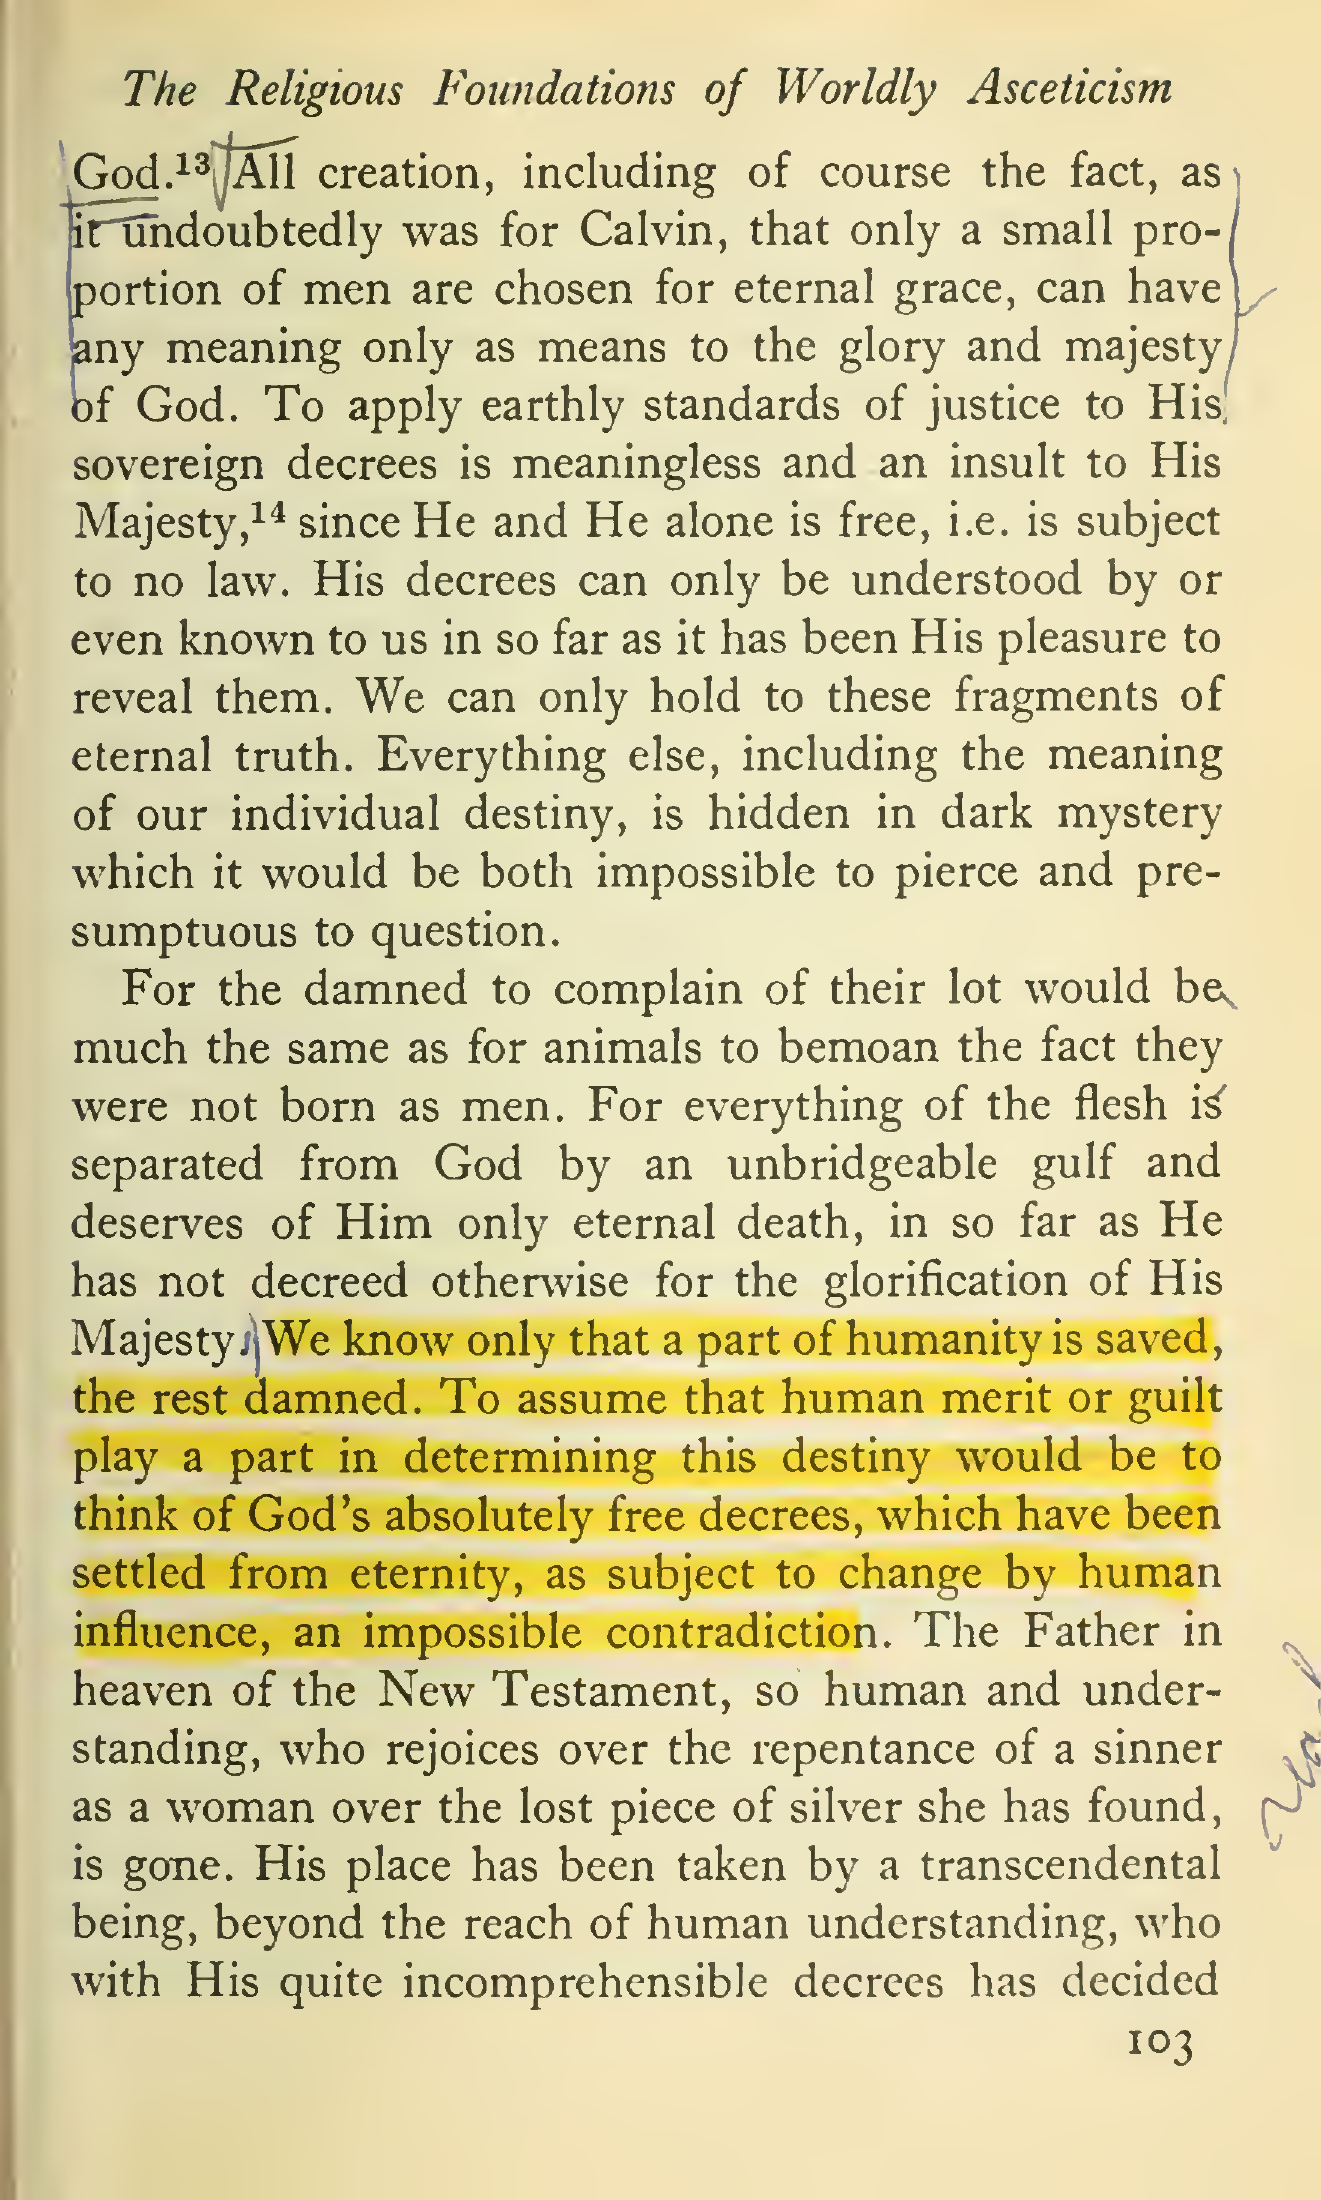 The Religious Foundations of Worldly Asceticism
God.¹³ All creation, including of course the fact, as
it undoubtedly was for Calvin, that only a small pro-
portion of men are chosen for eternal grace, can have
any meaning only as means to the glory and majesty
of God. To apply earthly standards of justice to His
sovereign decrees is meaningless and an insult to His
Majesty,¹⁴ since He and He alone is free, i.e. is subject
to no law. His decrees can only be understood by or
even known to us in so far as it has been His pleasure to
reveal them. We can only hold to these fragments of
eternal truth. Everything else, including the meaning
of our individual destiny, is hidden in dark mystery
which it would be both impossible to pierce and pre-
sumptuous to question.
For the damned to complain of their lot would be
much the same as for animals to bemoan the fact they
were not born as men. For everything of the flesh is
separated from God by an unbridgeable gulf and
deserves of Him only eternal death, in so far as He
has not decreed otherwise for the glorification of His
Majesty. We know only that a part of humanity is saved,
the rest damned. To assume that human merit or guilt
play a part in determining this destiny would be to
think of God's absolutely free decrees, which have been
settled from eternity, as subject to change by human
influence, an impossible contradiction. The Father in
heaven of the New Testament, so human and under-
standing, who rejoices over the repentance of a sinner
as a woman over the lost piece of silver she has found,
is gone. His place has been taken by a transcendental
being, beyond the reach of human understanding, who
with His quite incomprehensible decrees has decided
103